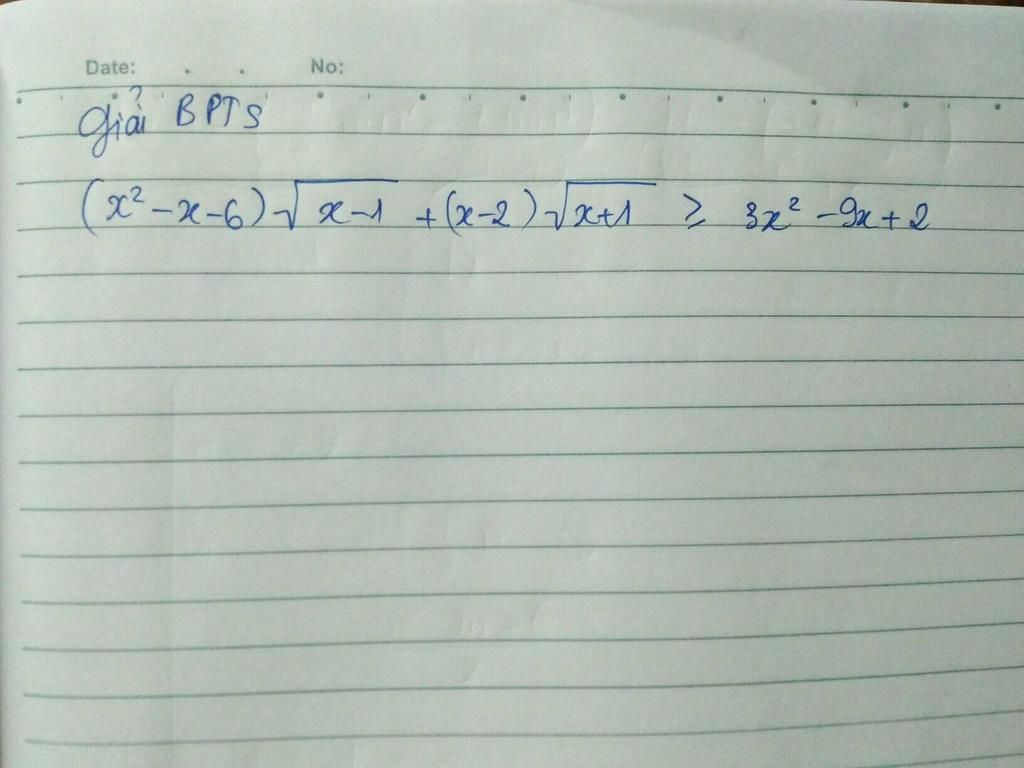 Date: . . No:
Giải BPTS
(x² - x - 6)√(x-1) + (x-2)√(x+1) ≥ 3x² - 9x + 2